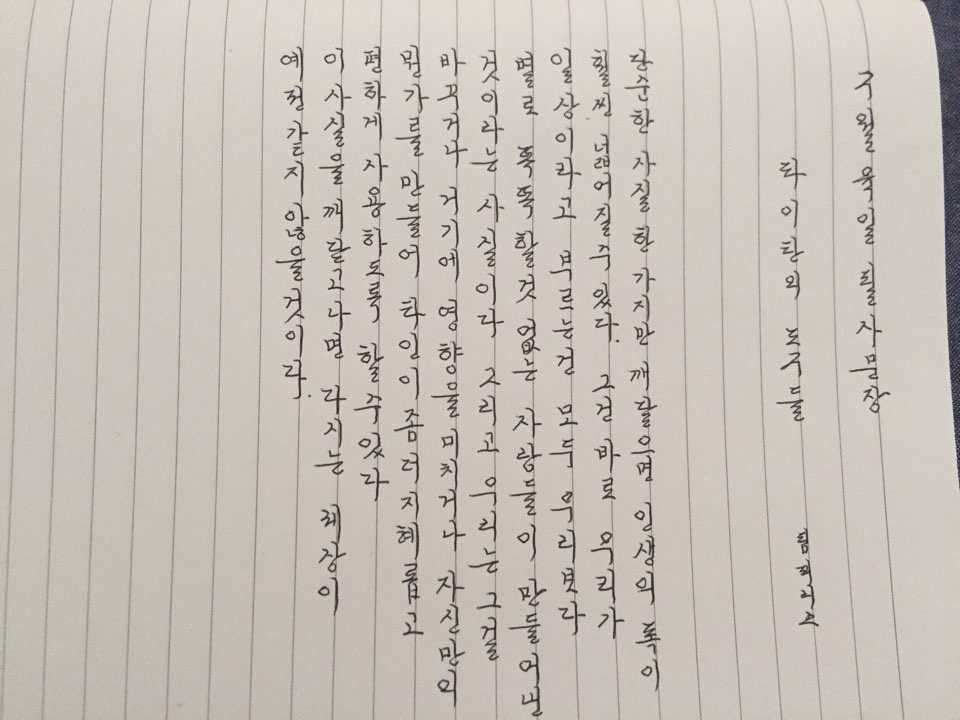 구월 육일 필사 문장
타이탄의 도구들
팀페리스
단순한 사실 한 가지만 깨달으면 인생의 폭이
훨씬 넓어질수 있다. 그건 바로 우리가
일상이라고 부르는건 모두 우리보다
별로 똑똑할것 없는 사람들이 만들어낸
것이라는 사실이다 그리고 우리는 그걸
바꾸거나 거기에 영향을 미치거나 자신만의
뭔가를 만들어 타인이 좀더 지혜롭고
편하게 사용하도록 할수있다
이 사실을 깨닫고나면 다시는 세상이
예전같지 않을것이다.